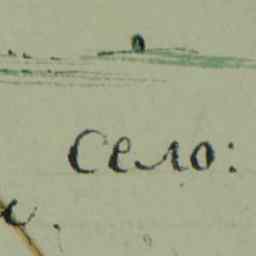 село: